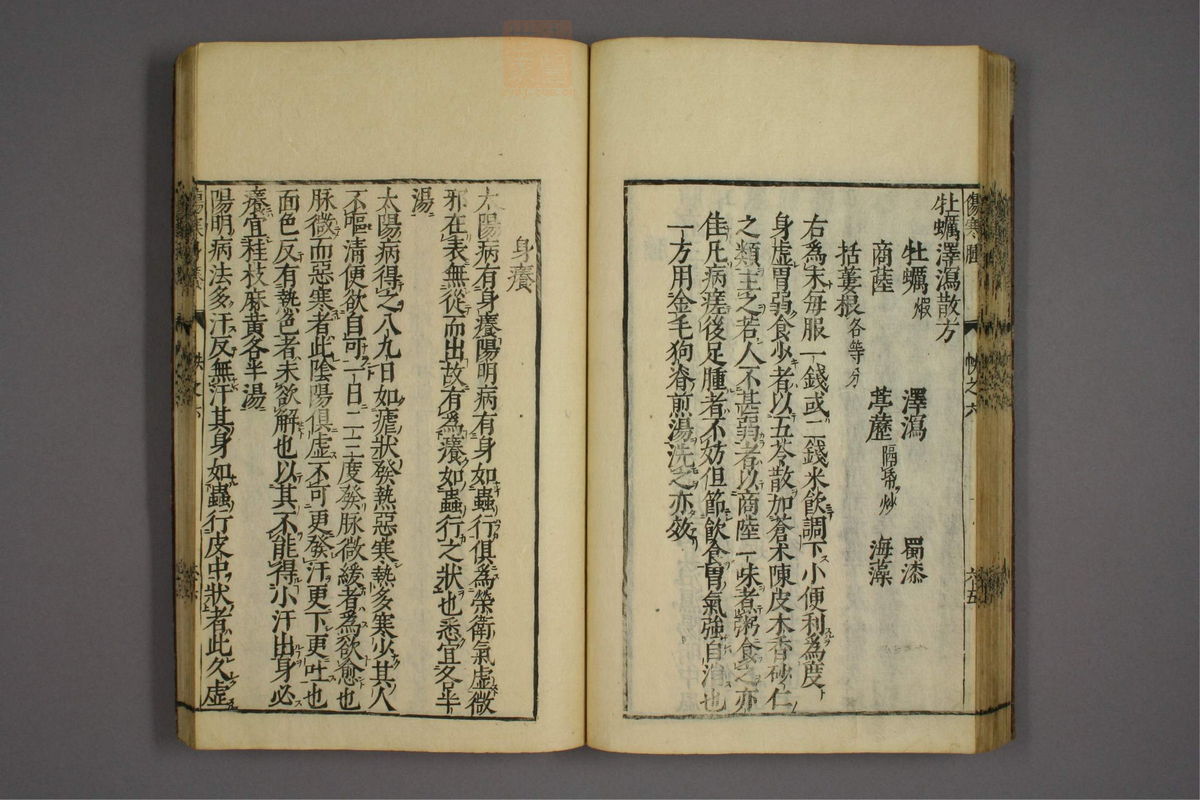 牡蠣澤瀉散方
牡蠣煆 澤瀉 蜀漆
商陸 葶藶隔紙炒 海藻
括蔞根各等分
右為末每服一錢或二錢米飲調下小便利為度
身虛胃弱食少者以五苓散加蒼朮陳皮木香砂仁
之類主之若人不甚弱者以商陸一味煮粥食之亦
佳凡病瘥後足腫者不妨但節飲食胃氣強自治也
一方用金毛狗脊煎湯洗之亦效
身癢
太陽病有身癢陽明病有身如蟲行俱為榮衛氣虛微
邪在表無從而出故有為癢如蟲行之狀也悉宜各半
湯
太陽病得之八九日如瘧狀發熱惡寒熱多寒少其人
不嘔清便欲自可一日二三度發脉微緩者為欲愈也
脉微而惡寒者此陰陽俱虛不可更發汗更下更吐也
面色反有熱色者未欲解也以其不能得小汗出身必
癢宜桂枝麻黃各半湯
陽明病法多汗反無汗其身如蟲行皮中狀者此久虛